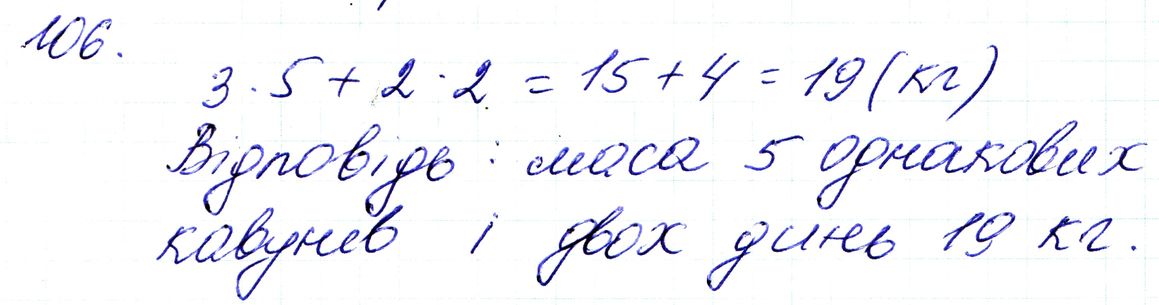 106.
3 · 5 + 2 · 2 = 15 + 4 = 19 (кг)
Відповідь: маса 5 однакових
кавунів і двох динь 19 кг.